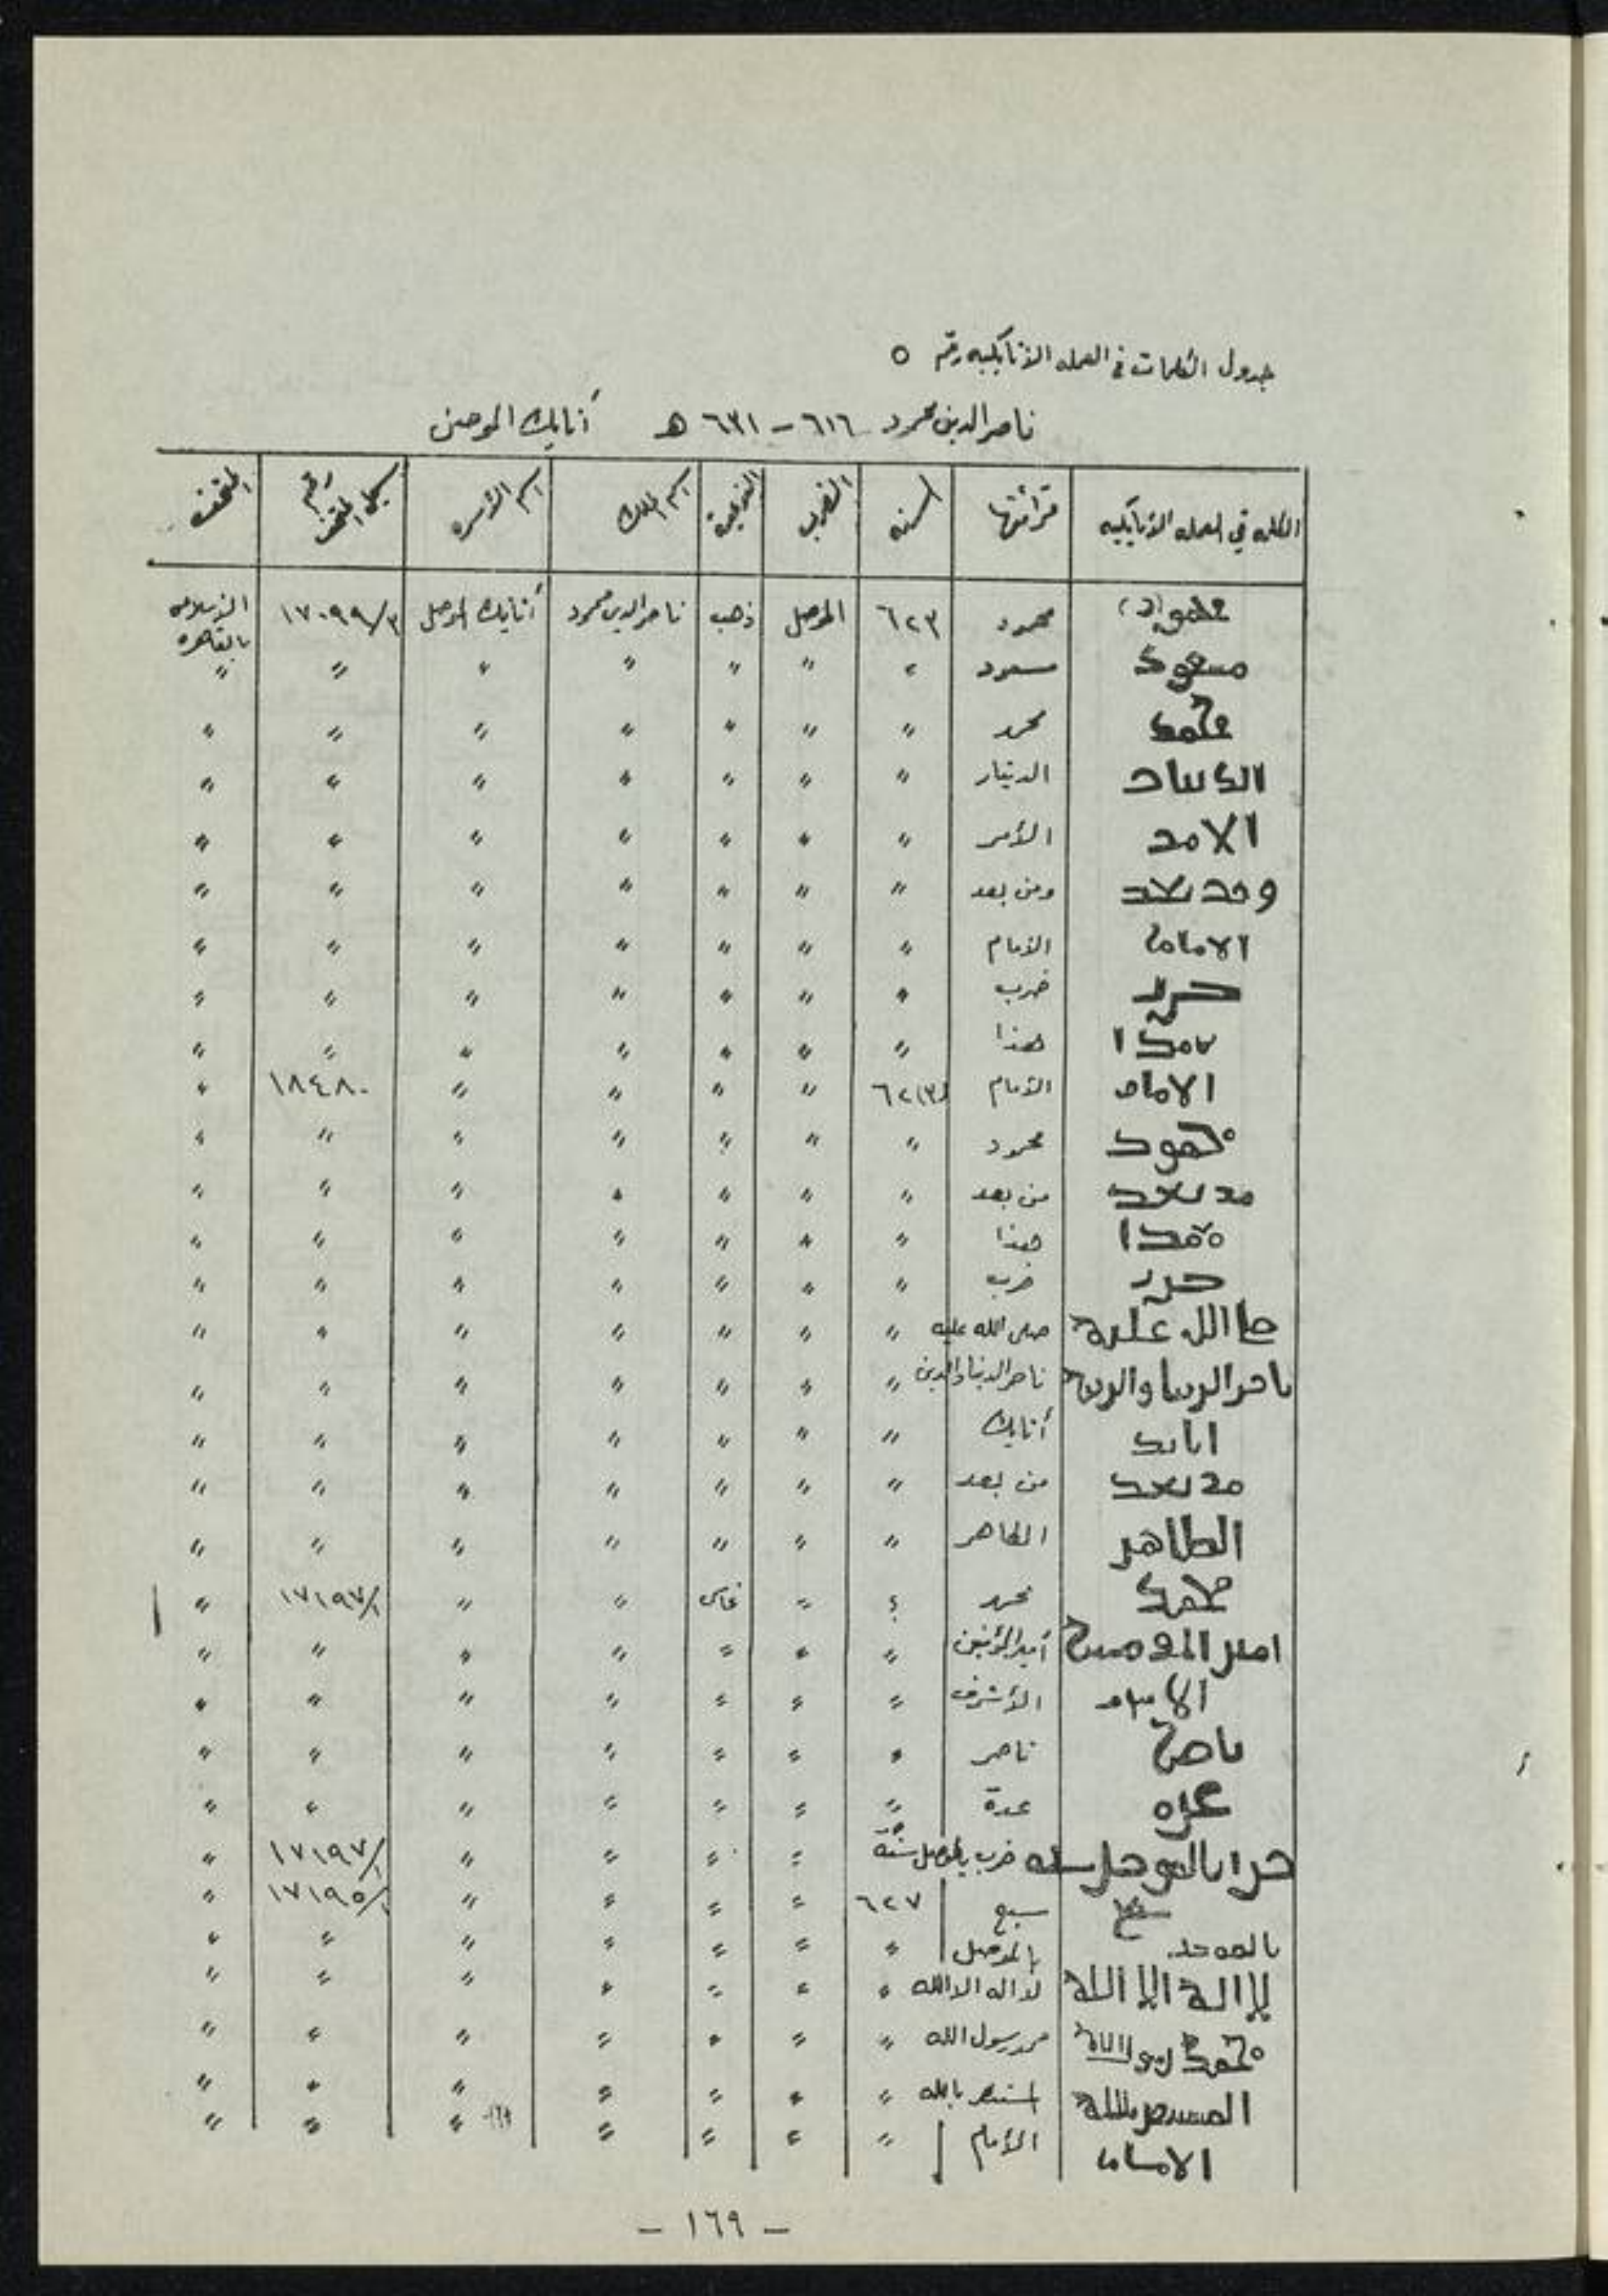 جدول الكلمات في العمله الأتابكيه رقم ٥
ناصر الدين محمود ٦١٦ – ٦٣١ هـ أتابك الموصل
الكلمه في العمله الأتابكيه قرائتها السنه الضرب النوعية اسم الملك اسم الأسره رقم سجل المتحف المتحف
محمو(د) محمود ٦٢٣ الموصل ذهب ناصر الدين محمود أتابك الموصل ١٧٠٩٩/٣ الإسلامى بالقاهره
مسعود مسعود " " " " " " "
محمد محمد " " " " " " "
الدىىار الدينار " " " " " " "
الامر الأمر " " " " " " "
ومن ىعد ومن بعد " " " " " " "
الامام الإمام " " " " " " "
ضرب ضرب " " " " " " "
هدا هذا " " " " " " "
الامام الإمام ٦٢(٣) " " " " ١٨٤٨٠ "
محمود محمود " " " " " " "
من ىعد من بعد " " " " " " "
هدا هذا " " " " " " "
ضرب ضرب " " " " " " "
صلى الله علىه صلى الله عليه " " " " " " "
ىاصر الدىىا والدىں ناصر الدنيا والدين " " " " " " "
اىاىك أتابك " " " " " " "
من ىعد من بعد " " " " " " "
الطاهر الظاهر " " " " " " "
محمد محمد ؟ " نحاس " " ١٧١٩٧/١ "
امىر المومىىں أمير المؤمنين " " " " " " "
الاسرف الأشرف " " " " " " "
ىاصر ناصر " " " " " " "
عده عدة " " " " " " "
ضرب بالموصل سنه ضرب بالموصل سنة " " " " ١٧١٩٧/١ "
سبع سبع ٦٢٧ " " " " ١٧١٩٥/١ "
بالموصل بالموصل " " " " " " "
لا اله الا الله لا اله الا الله " " " " " " "
محمد رسول الله محمد رسول الله " " " " " " "
المستنصر بالله المستنصر بالله " " " " " " "
الامام الإمام " " " " ١٦٩ " " "
– ١٦٩ –